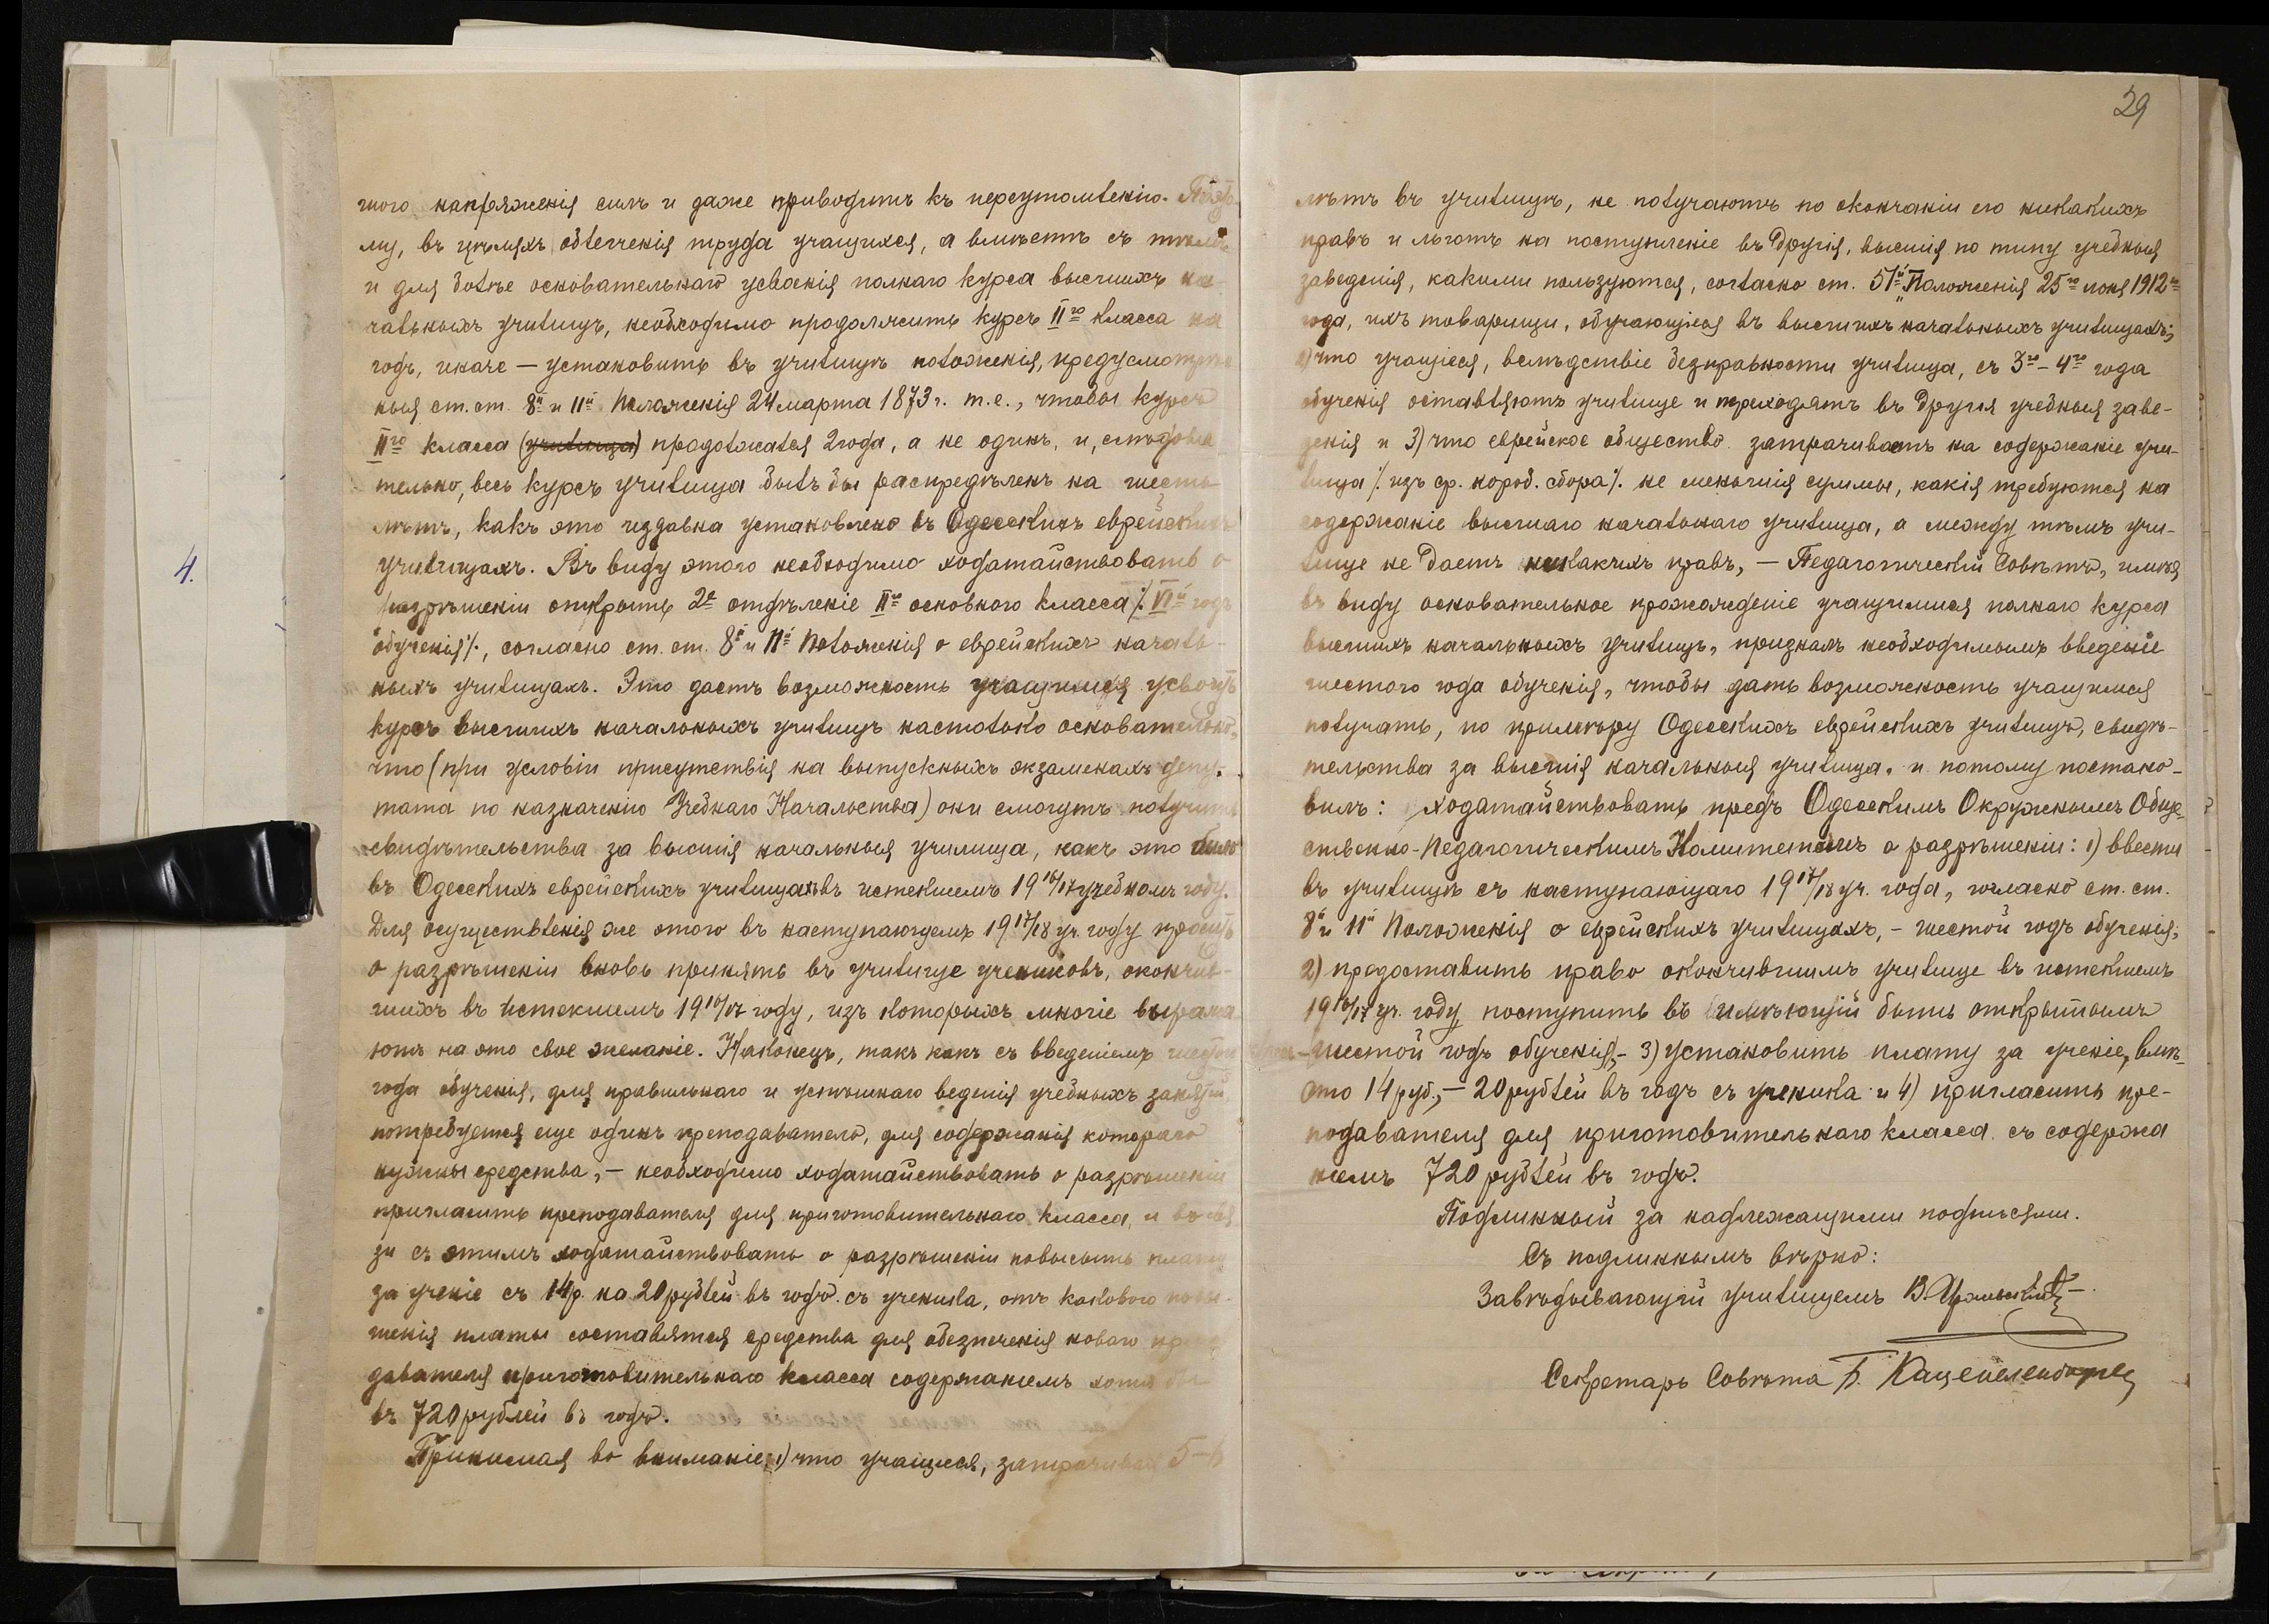 4.
шого напряженія силъ и даже приводитъ къ переутомленію. Поэто-
му, въ цѣляхъ облегченія труда учащихся, а вмѣстѣ съ тѣмъ
и для болѣе основательнаго усвоенія полнаго курса высшихъ на-
чальныхъ училищъ, необходимо продолжить курсъ II го класса на
годъ, иначе — установить въ училищѣ положенія, предусмотрѣн-
ныя ст. ст. 8й и 11й Положенія 24 марта 1873 г. т. е., чтобы курсъ
II го класса (училища) продолжался 2 года, а не одинъ, и, слѣдова
тельно, весь курсъ училища былъ бы распредѣленъ на шесть
лѣтъ, какъ это издавна установлено въ Одесскихъ еврейскихъ
училищахъ. Въ виду этого необходимо ходатайствовать о
разрѣшеніи открыть 2е отдѣленіе II го основного класса /. VI й годъ
обученія /., согласно ст. ст. 8й и 11й Положенія о еврейскихъ началь-
ныхъ училищахъ. Это дастъ возможность учащимся усвоить
курсъ высшихъ начальныхъ училищъ настолько основательно,
что (при условіи присутствія на выпускныхъ экзаменахъ депу-
тата по назначенію Учебнаго Начальства) они смогутъ получить
свидѣтельства за высшія начальныя училища, какъ это было
въ Одесскихъ еврейскихъ училищахъ въ истекшемъ 19 16/17 учебномъ году.
Для осуществленія же этого въ наступающемъ 19 17/18 уч. году просить
о разрѣшеніи вновь принять въ училище учениковъ, окончив-
шихъ въ истекшемъ 19 16/17 году, изъ которыхъ многіе выража
ютъ на это свое желаніе. Наконецъ, такъ какъ съ введеніемъ шестого
года обученія, для правильнаго и успѣшнаго веденія учебныхъ занятій
потребуется еще одинъ преподаватель, для содержанія котораго
нужны средства, — необходимо ходатайствовать о разрѣшеніи
пригласить преподавателя для приготовительнаго класса, и въ свя
зи съ этимъ ходатайствовать о разрѣшеніи повысить плату
за ученіе съ 14 р. на 20 рублей въ годъ съ ученика, отъ какового повы-
шенія платы составятся средства для обезпеченія новаго препо
давателя приготовительнаго класса содержаніемъ хотя бы
въ 720 рублей въ годъ.
Принимая во вниманіе: 1) что учащіеся, затрачивая 5-6
29
лѣтъ въ училищѣ, не получаютъ по окончаніи его никакихъ
правъ и льготъ на поступленіе въ другія, высшія по типу учебныя
заведенія, какими пользуются, согласно ст. 51й „Положенія 25го іюня 1912го
года, ихъ товарищи, обучающіеся въ высшихъ начальныхъ училищахъ;
2) что учащіеся, вслѣдствіе безправности училища, съ 3го - 4го года
обученія оставляютъ училище и переходятъ въ другія учебныя заве-
денія и 3) что еврейское общество затрачиваетъ на содержаніе учи-
лища /. изъ ср. короб. сбора /. не меньшія суммы, какія требуются на
содержаніе высшаго начальнаго училища, а между тѣмъ учи-
лище не даетъ никакихъ правъ, — Педагогическій Совѣтъ, имѣя
въ виду основательное прохожденіе учащимися полнаго курса
высшихъ начальныхъ училищъ, призналъ необходимымъ введеніе
шестого года обученія, чтобы дать возможность учащимся
получать, по примѣру Одесскихъ еврейскихъ училищъ, свидѣ-
тельства за высшія начальныя училища, и потому постано-
вилъ: ходатайствовать предъ Одесскимъ Окружнымъ Обще-
ственно-Педагогическимъ Комитетомъ о разрѣшеніи: 1) ввести
въ училищѣ съ наступающаго 19 17/18 уч. года, согласно ст. ст.
8й и 11й Положенія о еврейскихъ училищахъ, - шестой годъ обученія;
2) предоставить право окончившимъ училище въ истекшемъ
19 16/17 уч. году поступить въ имѣющій быть открытымъ
шестой годъ обученія, - 3) установить плату за ученіе, вмѣ-
сто 14 руб., - 20 рублей въ годъ съ ученика и 4) пригласить пре-
подавателя для приготовительнаго класса съ содержа
ніемъ 720 рублей въ годъ.
Подлинный за надлежащими подписями.
Съ подлиннымъ вѣрно:
Завѣдывающій училищемъ В.
Секретарь Совѣта Б. Каценеленбоген